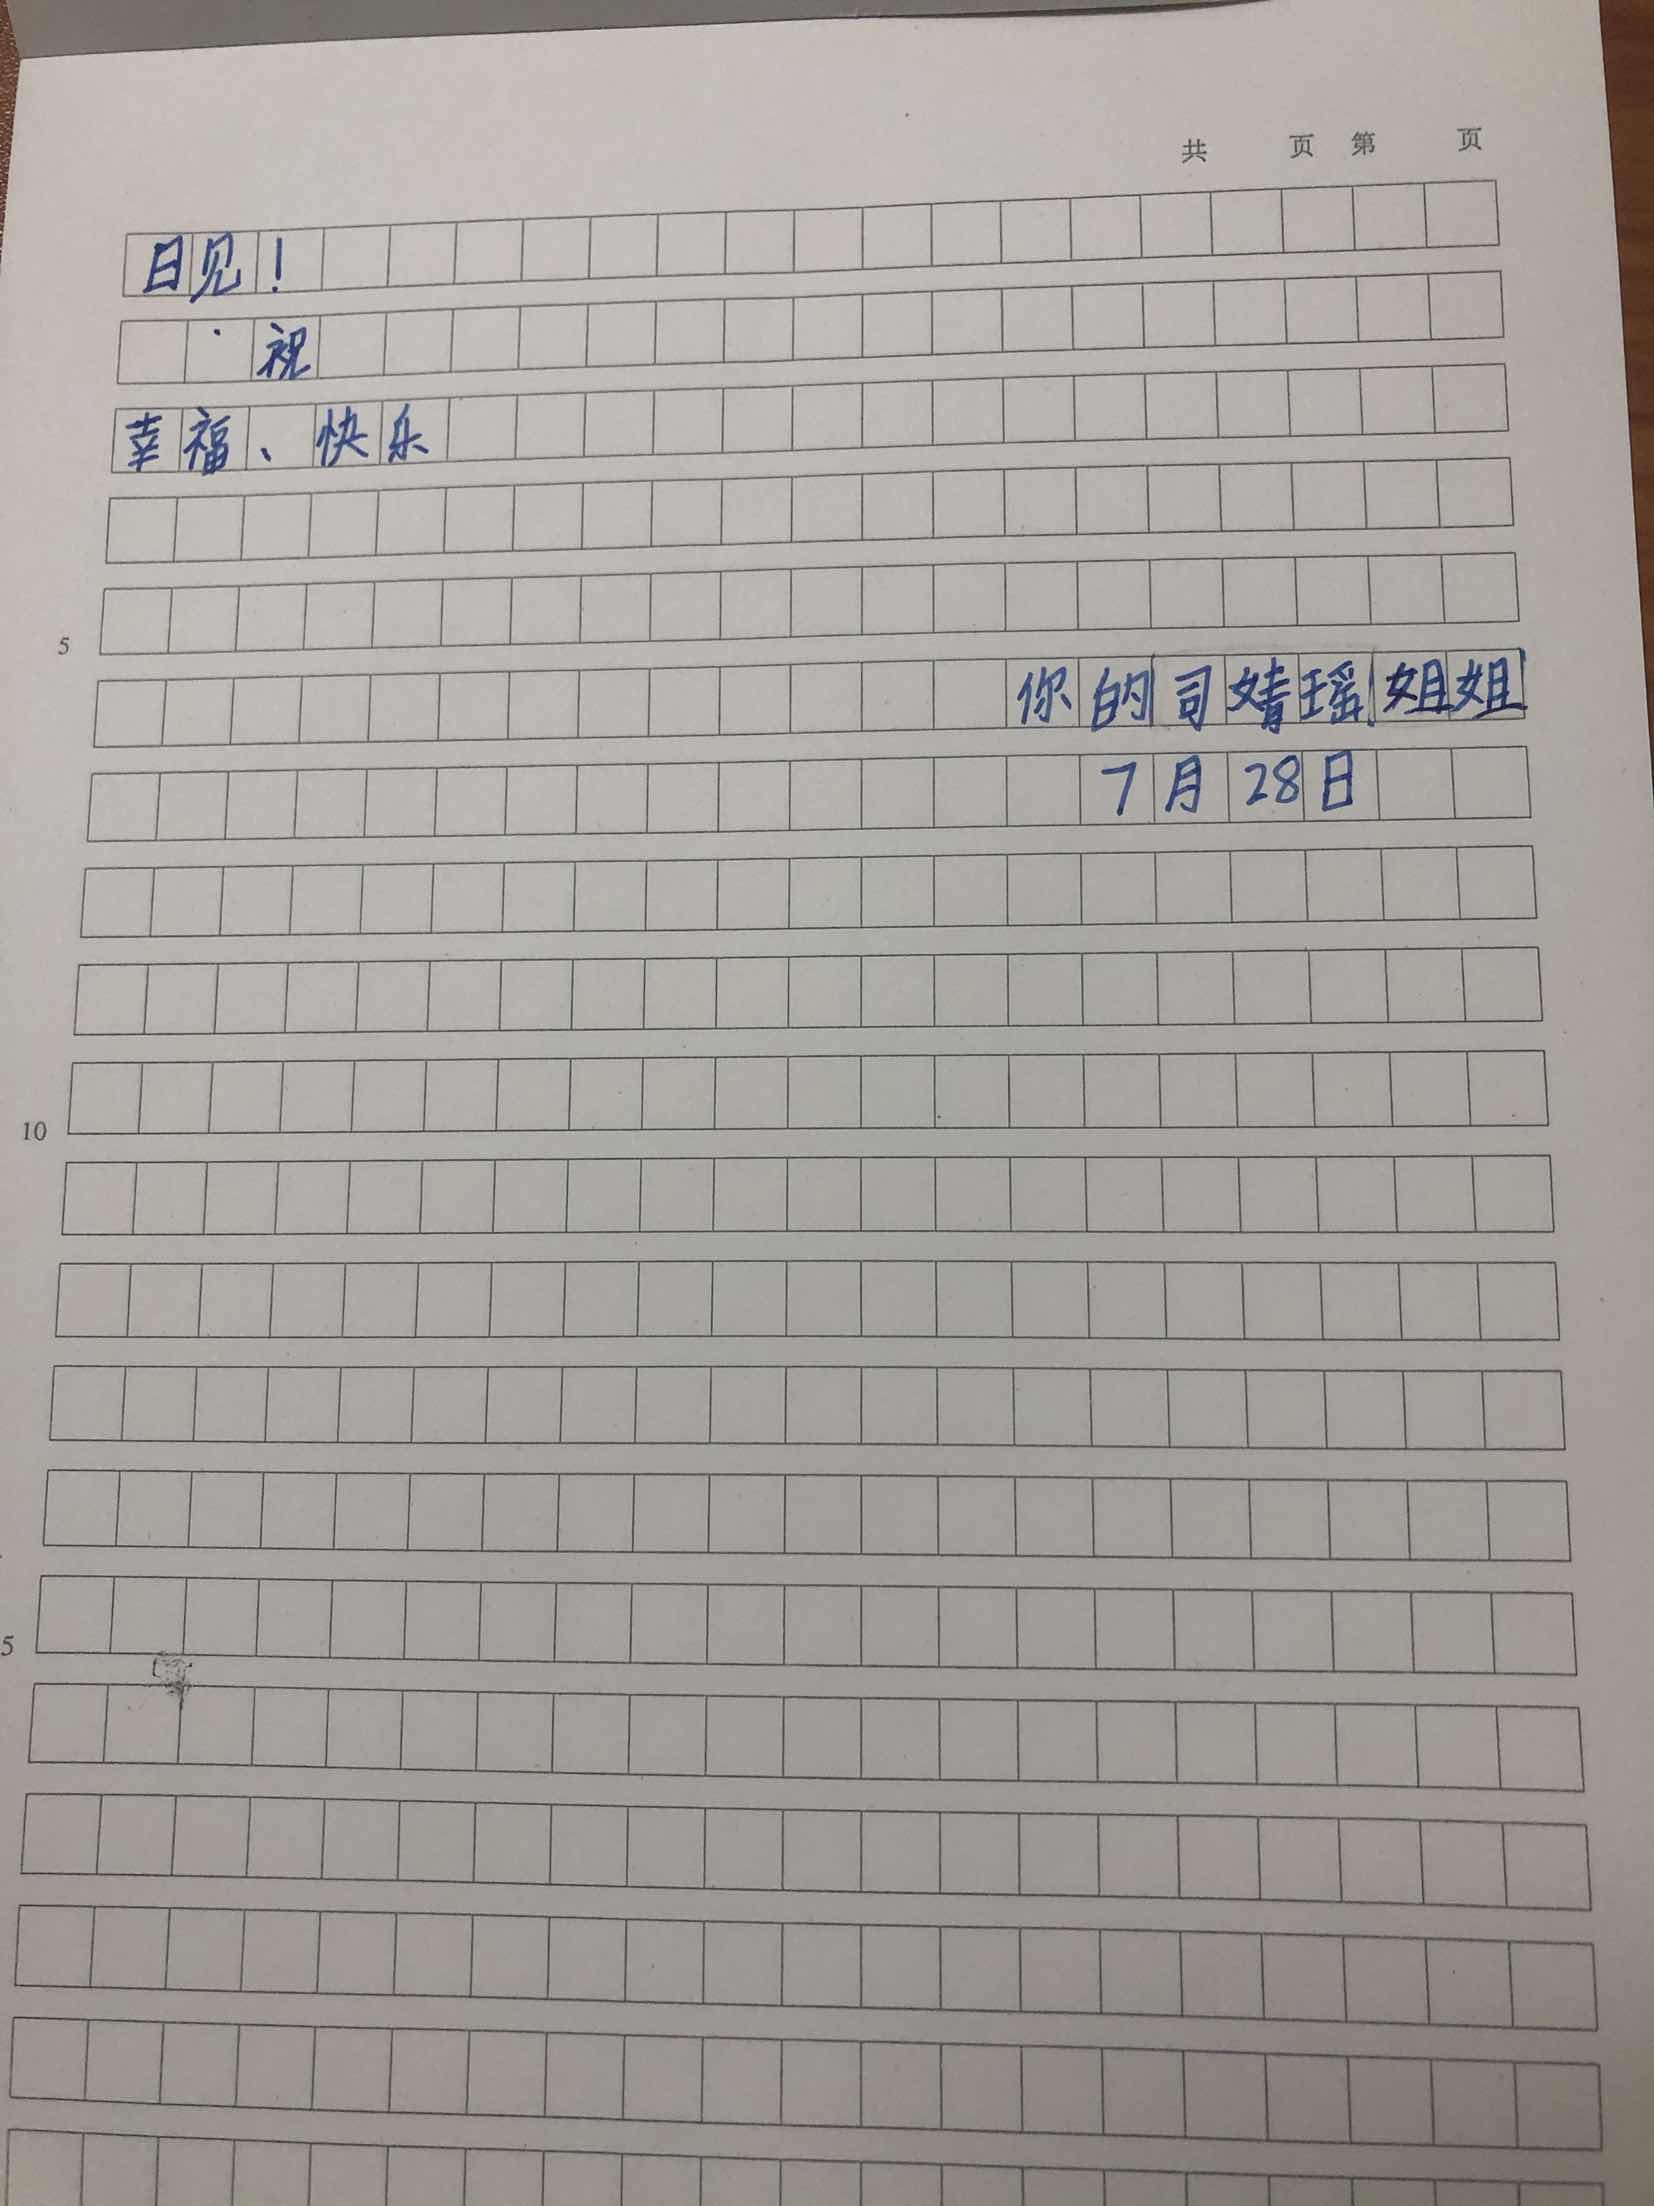 共 页 第 页
日见！
祝
幸福、快乐
5
你的司婧瑶姐姐
7月28日
10
5